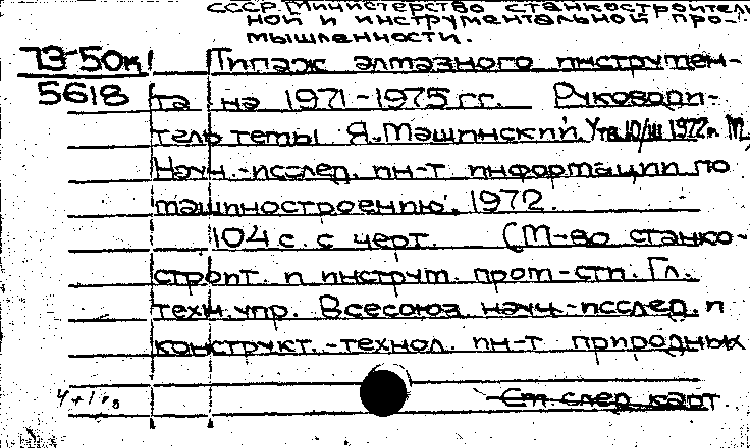 СССР. Министерство станкостроитель-
ной и инструментальной про-
мышленности.
73-50к Типаж алмазного инструмен-
5618 та на 1971-1975 гг. Руководи-
тель темы Я. Машинский. Утв. 10/III 1972 г. М.,
Науч.-исслед. ин-т информации по
машиностроению, 1972.
104 с. с черт. (М-во станко-
строит. и инструм. пром-сти. Гл.
техн. упр. Всесоюз. науч.-исслед. и
конструкт.-технол. ин-т природных
См. след. карт.